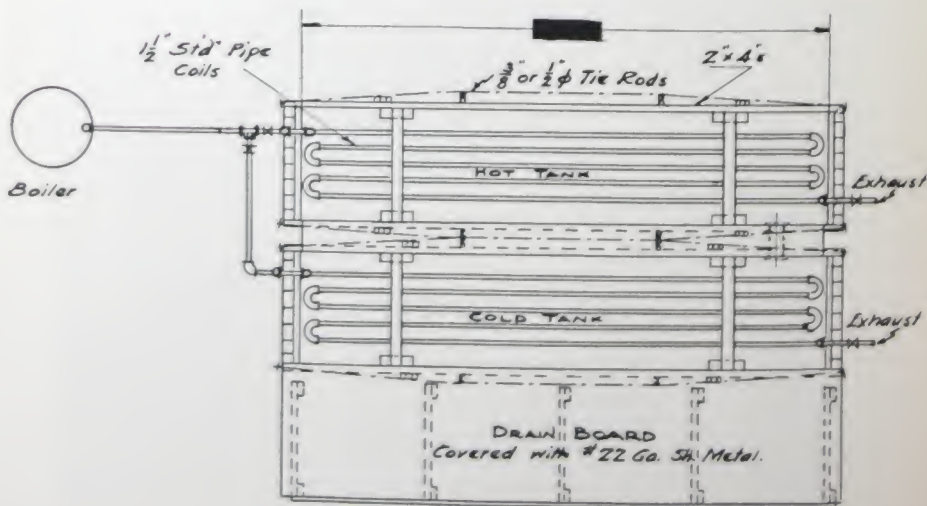 1 1/2" Std Pipe
Coils
3/8" or 1/2" φ Tie Rods
2"x4's
Boiler
HOT TANK
Exhaust
COLD TANK
Exhaust
DRAIN BOARD
Covered with #22 Ga. Sh. Metal.